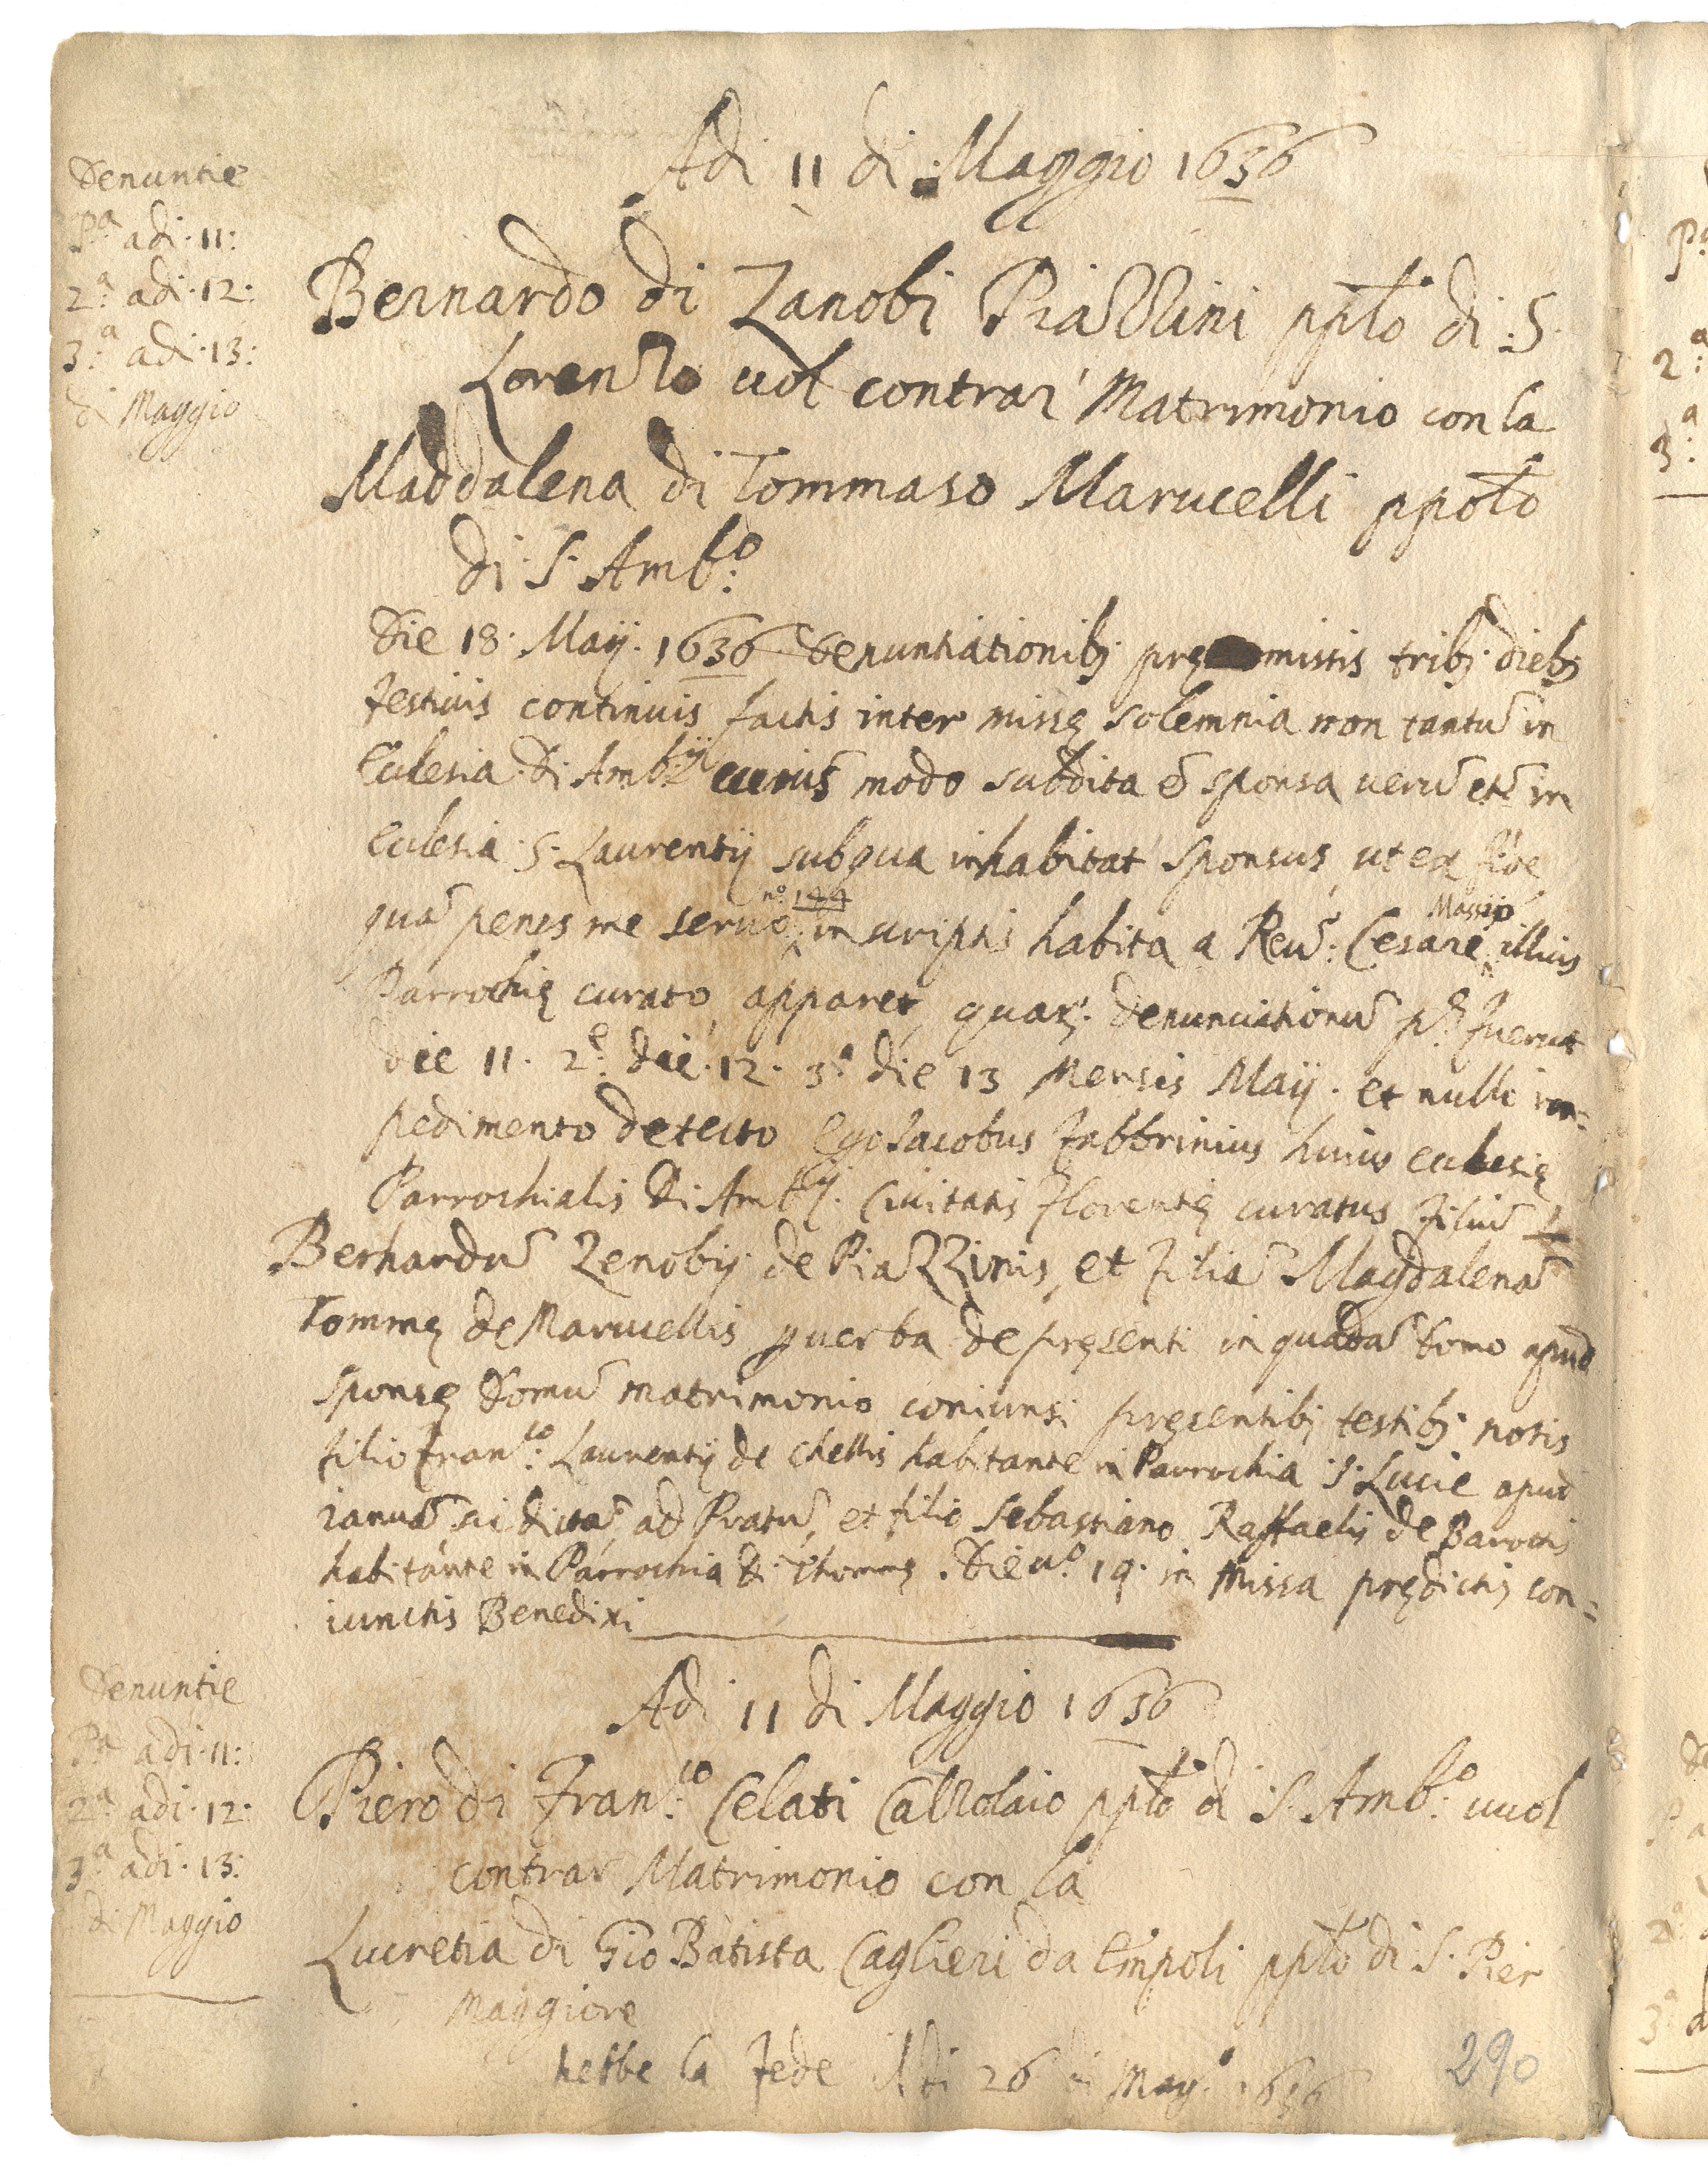 Adi 11 di Maggio 1636
Denuntie
Pª adi 11:
2ª adi 12:
3ª adi 13:
di Maggio
Bernardo di Zanobi Piazzini pplo di S.
Lorenzo uol contrar Matrimonio con la
Maddalena di Tommaso Marucelli ppolo
di S. Ambº:
Die 18. Maij. 1636 denuntiationibj pręmissis tribj diebj
festiuis continuis factis inter missę solemnia non tantũ in
Eclesia Di Ambij cuius modo subdita ẽ sponsa uerũ etẽ in
eclesia S. Laurentij subqua inhabitat sponsus, ut ex fide
quã penes me seruo nº 144 in scriptis habita a Reu: Cesare illius
Parrochię curato, apparet, quar. denunciationũ pª fuerut
die 11. 2ª die 12. 3ª die 13 Mensis Maij. et nullo im=
pedimento detecto Ego Jacobus Fabbrinius huius eclesię
Parrochialis Di Ambij. Ciuitatis florentię curatus filiũ
Bernardũ Zenobij de Piazzinis, et filiã Magdalenã
Tommę de Marucellis p uerba de pręsenti in quadã domo apud
sponsę domũ matrimonio coniunsi pręsentibj testibj notis
filio Franco: Laurentij de Chellis habitante in Parrochia S. Lucie apud
ianuã sic dictã ad Pratũ, et filio Sebastiano Raffaelis de Barottis
habitante in Parrochia Di Thomę. Die uº 19. in Missa prędictis con=
iunctis Benedixi
Adi 11 di Maggio 1636
Denuntie
Pª adi 11:
2ª adi 12:
3ª adi 13:
di Maggio
Piero di Franco: Celati Calzolaio pplo di S. Ambº: uuol
contrar Matrimonio con la
Lucretia di Gio Batista Caglieri da Empoli pplo di S. Pier
Maggiore
hebbe la fede Adi 26 di Magº 1636
290